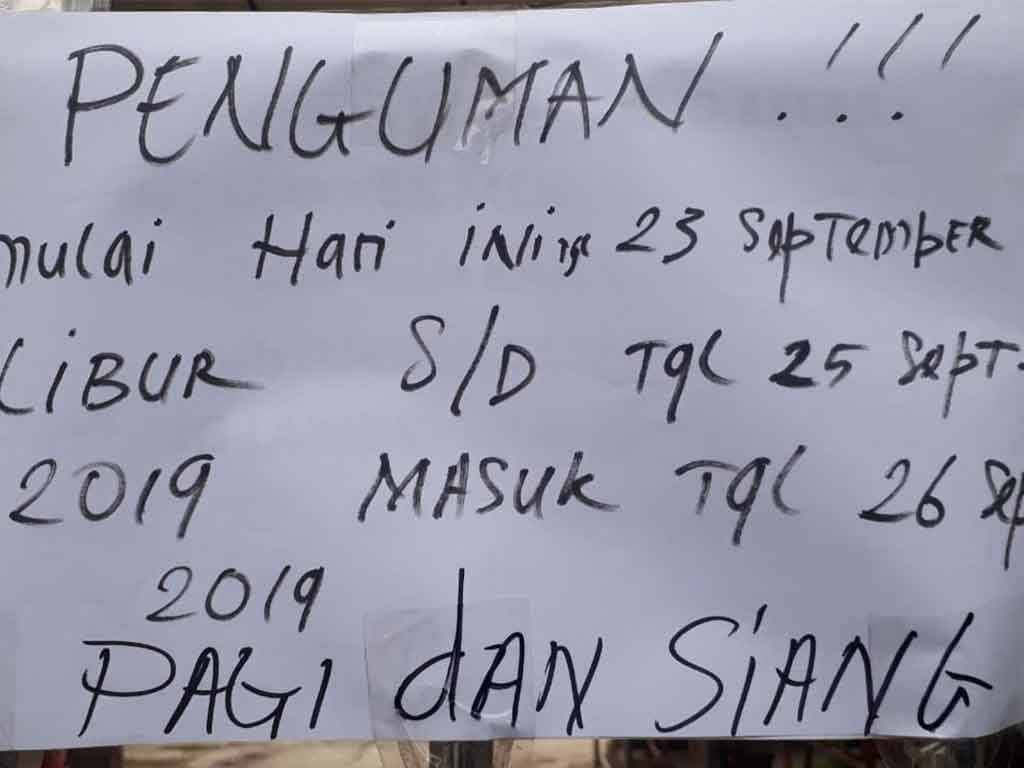 PENGUMAN !!!
mulai Hari ini 23 SepTember
LiBUR S/D Tgl 25 SepT.
2019 MASUK Tgl 26 Sep
2019
PAGI dAN SiANG